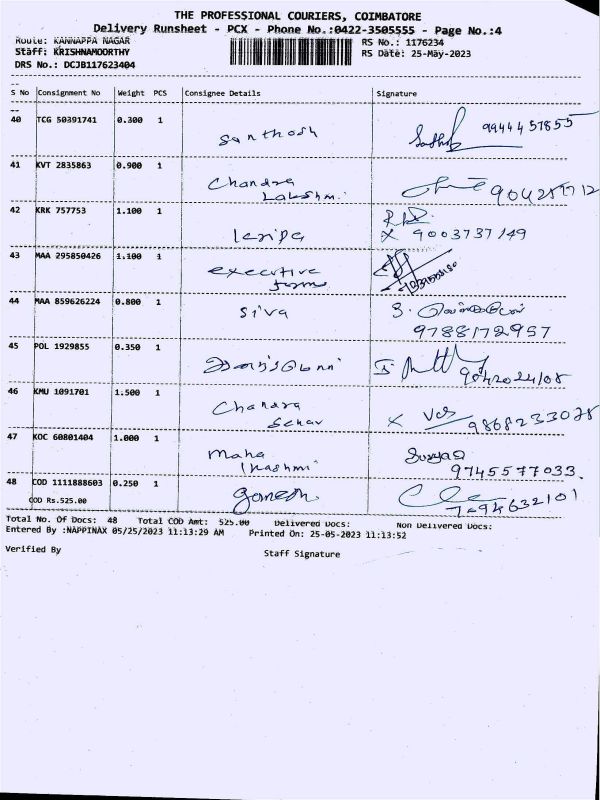 THE PROFESSIONAL COURIERS, COIMBATORE
Delivery Runsheet - PCX - Phone No.:0422-3505555 - Page No.:4
Route: KANNAPPA NAGAR
RS No.: 1176234
Staff: KRISHNAMOORTHY
RS Date: 25-May-2023
DRS No.: DCJB117623404
S No Consignment No Weight PCS Consignee Details Signature
40 TCG 50391741 0.300 1 Santhosh 9944457855
41 KVT 2835863 0.900 1 Chandra
Lakshmi
42 KRK 757753 1.100 1
X 9003737149
43 MAA 295850426 1.100 1 executive
44 MAA 859626224 0.800 1 Siva
9788172957
45 POL 1929855 0.350 1
46 KMU 1091701 1.500 1 Chandra
X 9868233078
47 KOC 60801404 1.000 1 Maha
9745577033
48 COD 1111888603 0.250 1 ganesh 7094632101
COD Rs.525.00
Total No. Of Docs: 48 Total COD Amt: 525.00 Delivered Docs: Non Delivered Docs:
Entered By :NAPPINAX 05/25/2023 11:13:29 AM Printed On: 25-05-2023 11:13:52
Verified By
Staff Signature